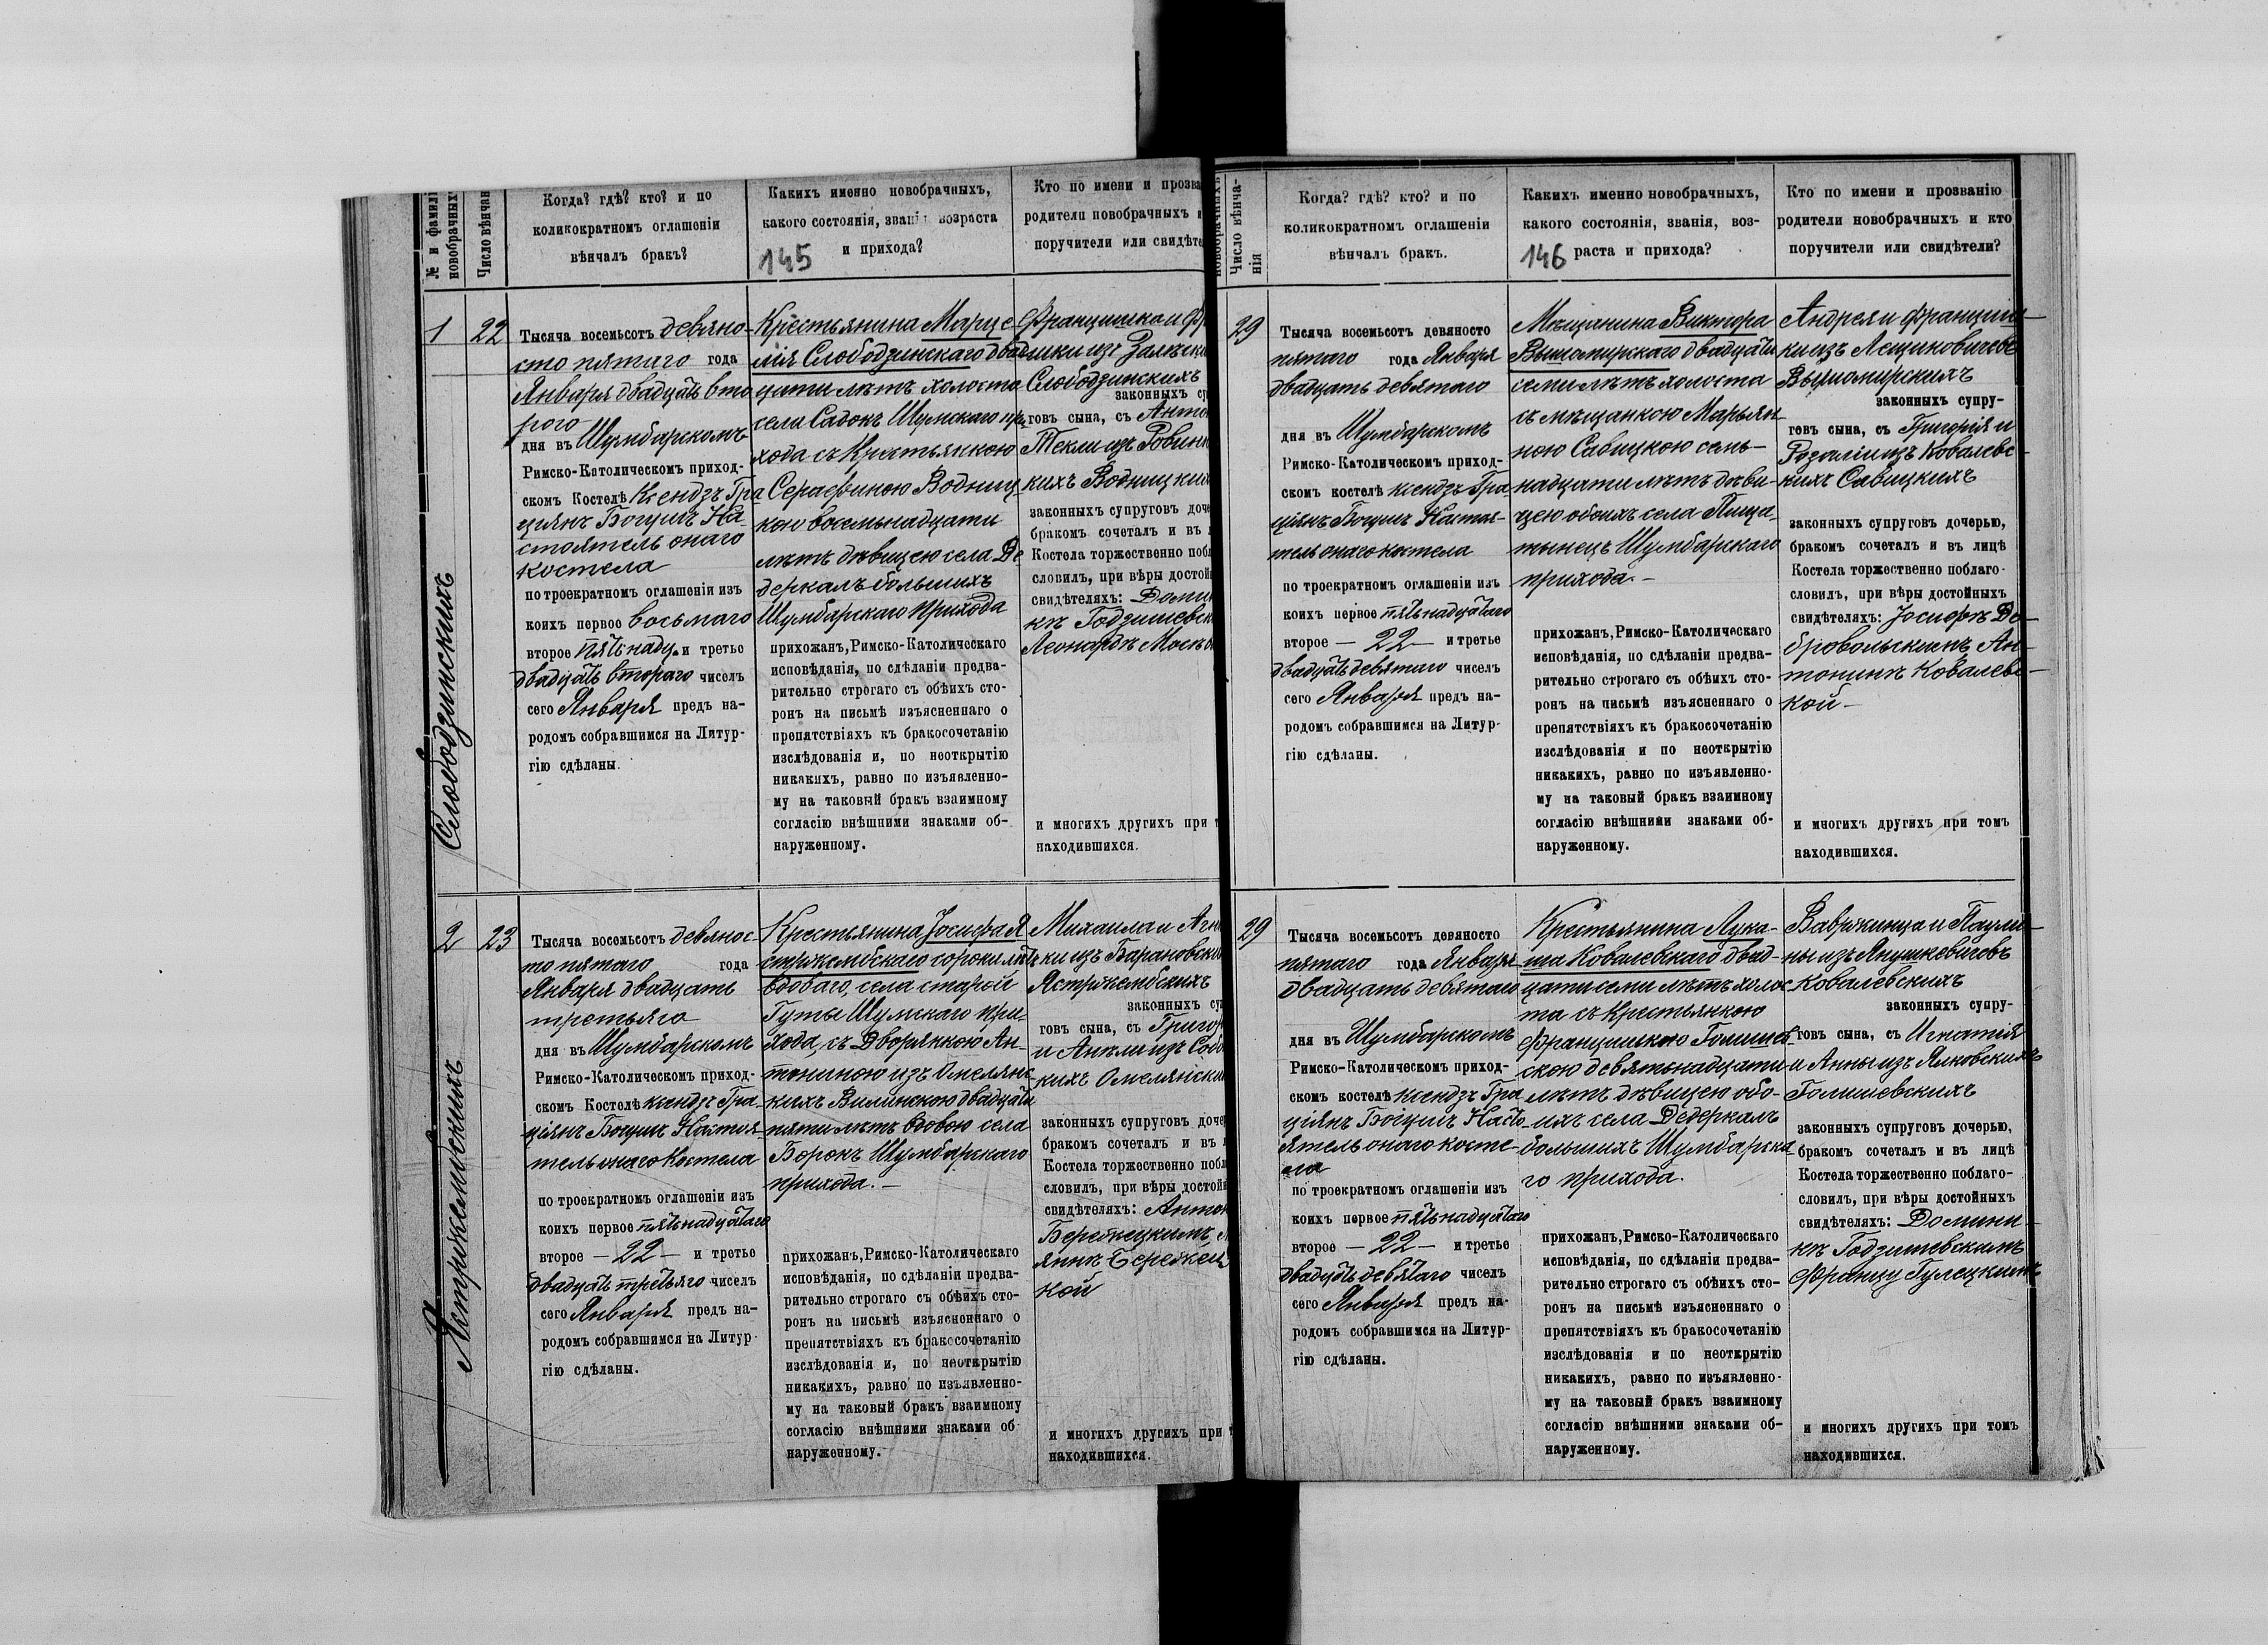 № и фамилі
новобрачных
Число вѣнчан
Когда? гдѣ? кто? и по
коликократномъ оглашеніи
вѣнчалъ бракъ?
Какихъ именно новобрачныхъ,
какого состоянія, званія возраста
и прихода?
145
Кто по имени и прозва
родители новобрачныхъ и
поручители или свидѣте
1
22
Слободзинскихъ
Тысяча восемьсотъ девяно-
сто пятаго года
Января двадцать вто
рого
дня въ Шумбарскомъ
Римско-Католическомъ приход-
скомъ Костелѣ Ксендзъ Гра
ціянъ Богушъ На-
стоятель онаго
костела
по троекратномъ оглашеніи изъ
коихъ первое восьмаго
второе пятьнадц. и третье
двадцать втораго чиселъ
сего Января предъ на-
родомъ собравшимся на Литур-
гію сдѣланы.
Крестьянина Марце
лія Слободзинскаго двад
цати лѣтъ холоста
села Садокъ Шумскаго при
хода съ Крестьянкою
Серафиною Водниц
кою восемьнадцати
лѣтъ дѣвицею села Де
деркалъ большихъ
Шумбарскаго прихода
прихожанъ, Римско-Католическаго
исповѣданія, по сдѣланіи предва-
рительно строгаго съ обѣихъ сто-
ронъ на письмѣ изъясненнаго о
препятствіяхъ къ бракосочетанію
изслѣдованія и, по неоткрытію
никакихъ, равно по изъявленно-
му на таковый бракъ взаимному
согласію внѣшними знаками об-
наруженному.
Францишка и Фр
цишки изъ Залѣски
Слободзинскихъ
законныхъ су
говъ сына, съ Анто
Текли изъ Ровинс
кихъ Водницких
законныхъ супруговъ доче
бракомъ сочеталъ и въ л
Костела торжественно побл
словилъ, при вѣры достой
свидѣтеляхъ: Доми
кѣ Годзишевск
Леонардѣ Москв
и многихъ другихъ при т
находившихся.
2
23
Ястржембскихъ
Тысяча восемьсотъ девянос-
то пятаго года
Января двадцать
третьяго
дня въ Шумбарскомъ
Римско-Католическомъ приход-
скомъ Костелѣ ксендзъ Гра-
ціянъ Богушъ Настоя-
тель онаго Костела
по троекратномъ оглашеніи изъ
коихъ первое пятьнадцатаго
второе — 22 — и третье
двадцать третьяго чиселъ
сего Января предъ на-
родомъ собравшимся на Литур-
гію сдѣланы.
Крестьянина Іосифа Я
стржембскаго сорока лѣтъ
вдоваго, села старой
Гуты Шумскаго при-
хода, съ Дворянкою Ан-
тониною изъ Омелянс
кихъ Вилинскою двадцати
пяти лѣтъ вдовою села
Борокъ Шумбарскаго
прихода. —
прихожанъ, Римско-Католическаго
исповѣданія, по сдѣланіи предва-
рительно строгаго съ обѣихъ сто-
ронъ на письмѣ изъясненнаго о
препятствіяхъ къ бракосочетанію
изслѣдованія и, по неоткрытію
никакихъ, равно по изъявленно-
му на таковый бракъ взаимному
согласію внѣшними знаками об
наруженному.
Михаила и Агне
ки изъ Барановски
Ястржембскихъ
законныхъ су
говъ сына, съ Григор
и Анѣли изъ Собо
кихъ Омелянски
законныхъ супруговъ доче
бракомъ сочеталъ и въ л
Костела торжественно побл
словилъ, при вѣры достой
свидѣтеляхъ: Антон
Бережецкимъ,
яннѣ Бережец
кой
и многихъ другихъ при т
находившихся.
новобрачныхъ
Число вѣнча-
нія
Когда? гдѣ? кто? и по
коликократномъ оглашеніи
вѣнчалъ бракъ.
Какихъ именно новобрачныхъ,
какого состоянія, званія, воз-
раста и прихода?
146
Кто по имени и прозванію
родители новобрачныхъ и кто
поручители или свидѣтели?
29
Тысяча восемьсотъ девяносто
пятаго года Января
двадцать девятаго
дня въ Шумбарскомъ
Римско-Католическомъ приход-
скомъ костелѣ ксендзъ Гра-
ціянъ Богушъ Настоя-
тель онаго костела
по троекратномъ оглашеніи изъ
коихъ первое пятьнадцатаго
второе — 22 — и третье
двадцать девятаго чиселъ
сего Января предъ на-
родомъ собравшимся на Литур-
гію сдѣланы.
Мѣщанина Виктора
Вышомирскаго двадцати
семи лѣтъ холоста
съ мѣщанкою Марьян-
ною Савицкою семь-
надцати лѣтъ дѣви-
цею обоихъ села Пища-
тынецъ Шумбарскаго
прихода. —
прихожанъ, Римско-Католическаго
исповѣданія, по сдѣланіи предва-
рительно строгаго съ обѣихъ сто-
ронъ на письмѣ изъясненнаго о
препятствіяхъ къ бракосочетанію
изслѣдованія и по неоткрытію
никакихъ, равно по изъявленно-
му на таковый бракъ взаимному
согласію внѣшними знаками об-
наруженному.
Андрея и Францишки
изъ Лещиновичевъ
Вышомирскихъ
законныхъ супру-
говъ сына, съ Григорія и
Розаліи изъ Ковалевс-
кихъ Савицкихъ
законныхъ супруговъ дочерью,
бракомъ сочеталъ и въ лицѣ
Костела торжественно поблаго-
словилъ, при вѣры достойныхъ
свидѣтеляхъ: Іосифѣ До-
бровольскимъ, Ан-
тонинѣ Ковалевс-
кой —
и многихъ другихъ при томъ
находившихся.
29
Тысяча восемьсотъ девяносто
пятаго года Января
двадцать девятаго
дня въ Шумбарскомъ
Римско-Католическомъ приход-
скомъ костелѣ ксендзъ Гра
ціянъ Богушъ Насто-
ятель онаго косте-
ла
по троекратномъ оглашеніи изъ
коихъ первое пятьнадцатаго
второе — 22 — и третье
двадцать девятаго чиселъ
сего Января предъ на-
родомъ собравшимся на Литур-
гію сдѣланы.
Крестьянина Лука-
ша Ковалевскаго двад-
цати семи лѣтъ холос
та съ Крестьянкою
Францишкою Голишев-
скою девятьнадцати
лѣтъ дѣвицею обо-
ихъ села Дедеркалъ
большихъ Шумбарска
го прихода.
прихожанъ, Римско-Католическаго
исповѣданія, по сдѣланіи предва-
рительно строгаго съ обѣихъ сто-
ронъ на письмѣ изъясненнаго о
препятствіяхъ къ бракосочетанію
изслѣдованія и по неоткрытію
никакихъ, равно по изъявленно-
му на таковый бракъ взаимному
согласію внѣшними знаками об-
наруженному.
Вавржинца и Паули-
ны изъ Янушкевичовъ
Ковалевскихъ
законныхъ супру-
говъ сына, съ Игнатія
и Анны изъ Янковскихъ
Голишевскихъ
законныхъ супруговъ дочерью,
бракомъ сочеталъ и въ лицѣ
Костела торжественно поблаго-
словилъ, при вѣры достойныхъ
свидѣтеляхъ: Домини-
кѣ Годзишевскимъ
Францу Гулецкимъ
и многихъ другихъ при томъ
находившихся.